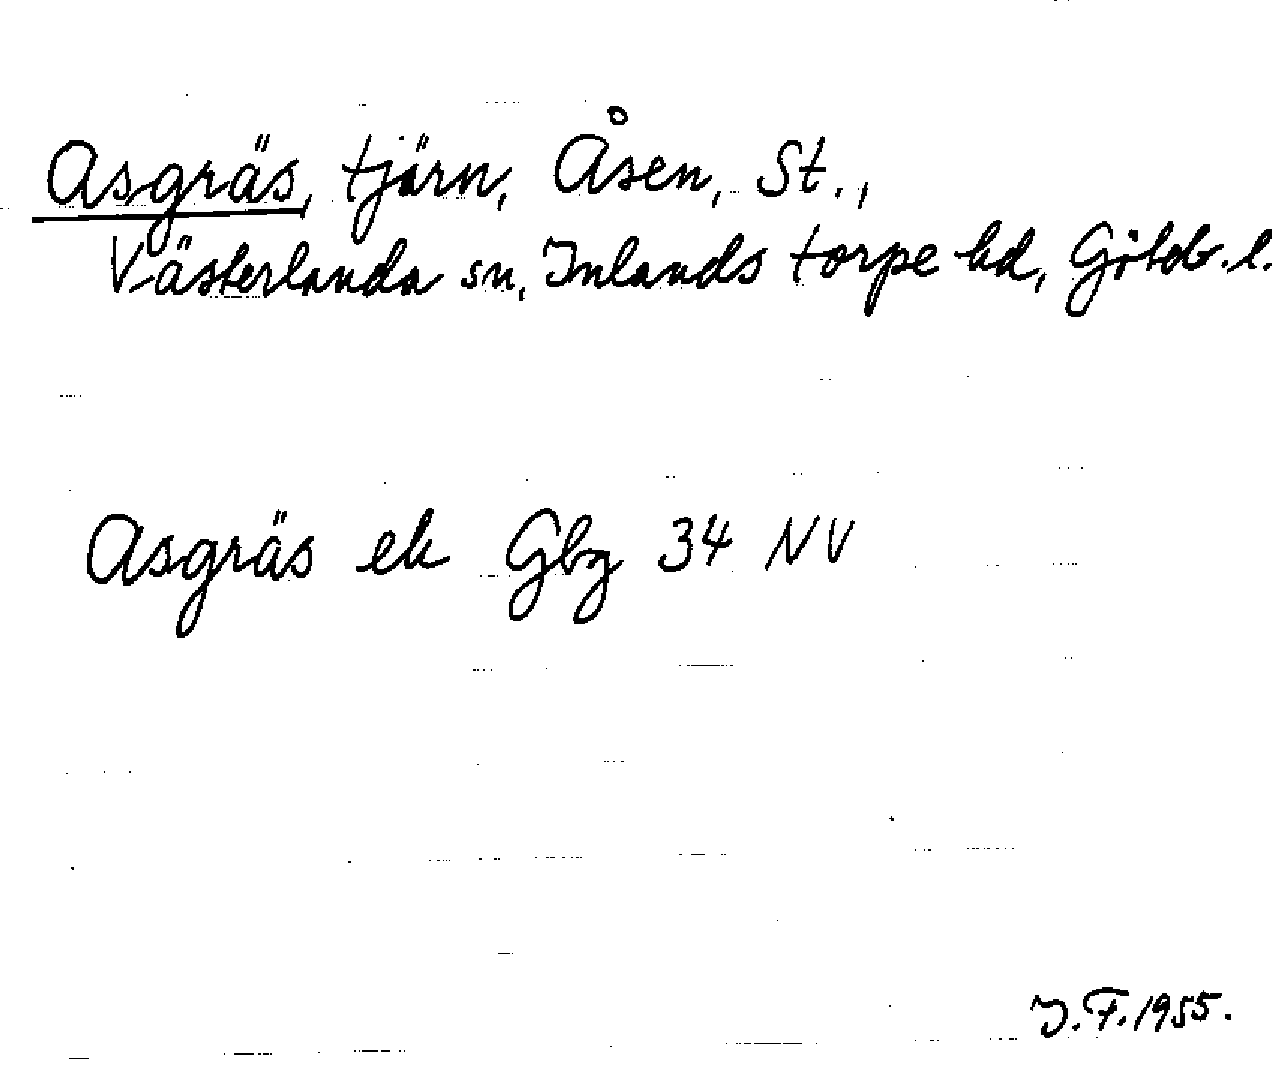 Asgräs, tjärn, Åsen, St.,
Västerlanda sn, Inlands torpe hd, Götob. l.
Asgräs ek Gbg 34 NV
J.F. 1955.